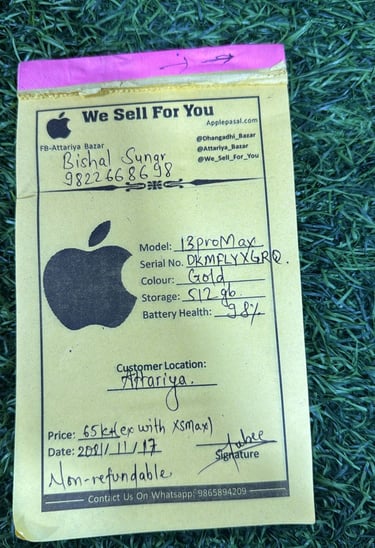 We Sell For You
Applepasal.com
FB-Attariya Bazar
@Dhangadhi_Bazar
@Attariya_Bazar
@We_Sell_For_You
Bishal Sunar
9822668698
Model: 13proMax
Serial No. DKMFLYXGRQ.
Colour: Gold
Storage: 512 gb.
Battery Health: 98%
Customer Location:
Attariya.
Price: 65k+(ex with XSMax)
Date: 2081/11/17
Signature
Non-refundable
Contact Us On Whatsapp: 9865894209